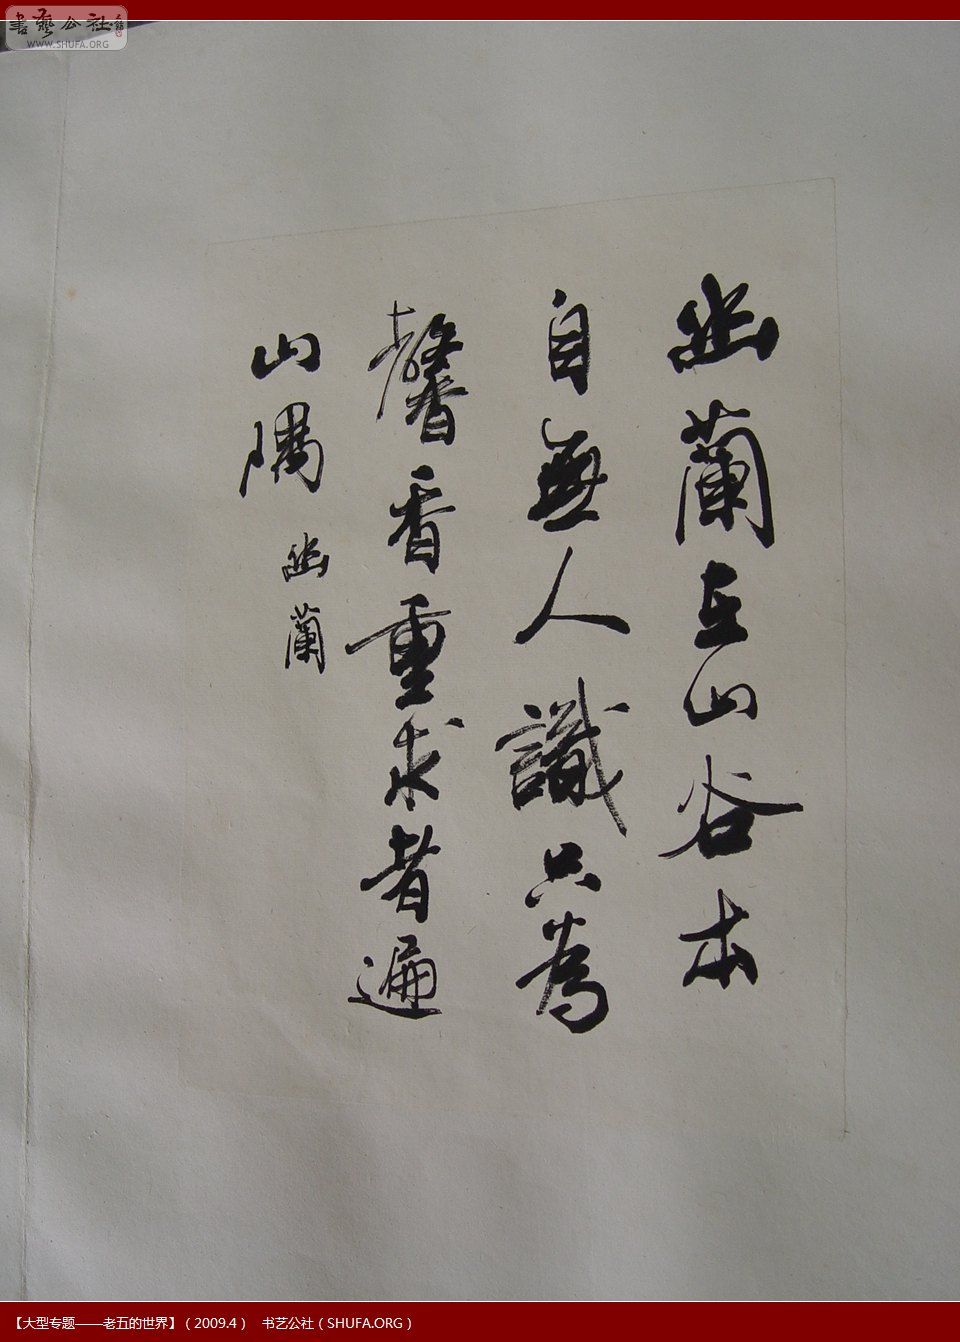 书艺公社
WWW.SHUFA.ORG
幽蘭在山谷本
自無人識只為
馨香重求者遍
山隅 幽蘭
【大型专题——老五的世界】（2009.4） 书艺公社（SHUFA.ORG）